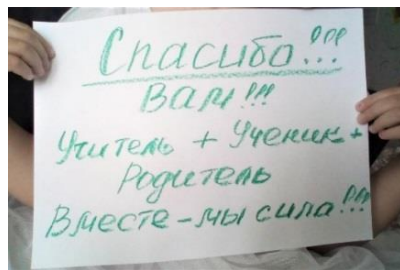 Спасибо!!!
Вам!!!
Учитель + Ученик +
Родитель
Вместе - мы сила!!!